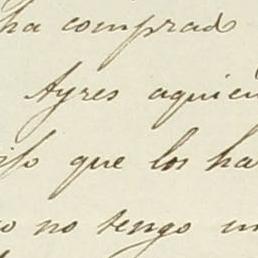 ha comprado
Ayres aquien
que los ha
no tengo